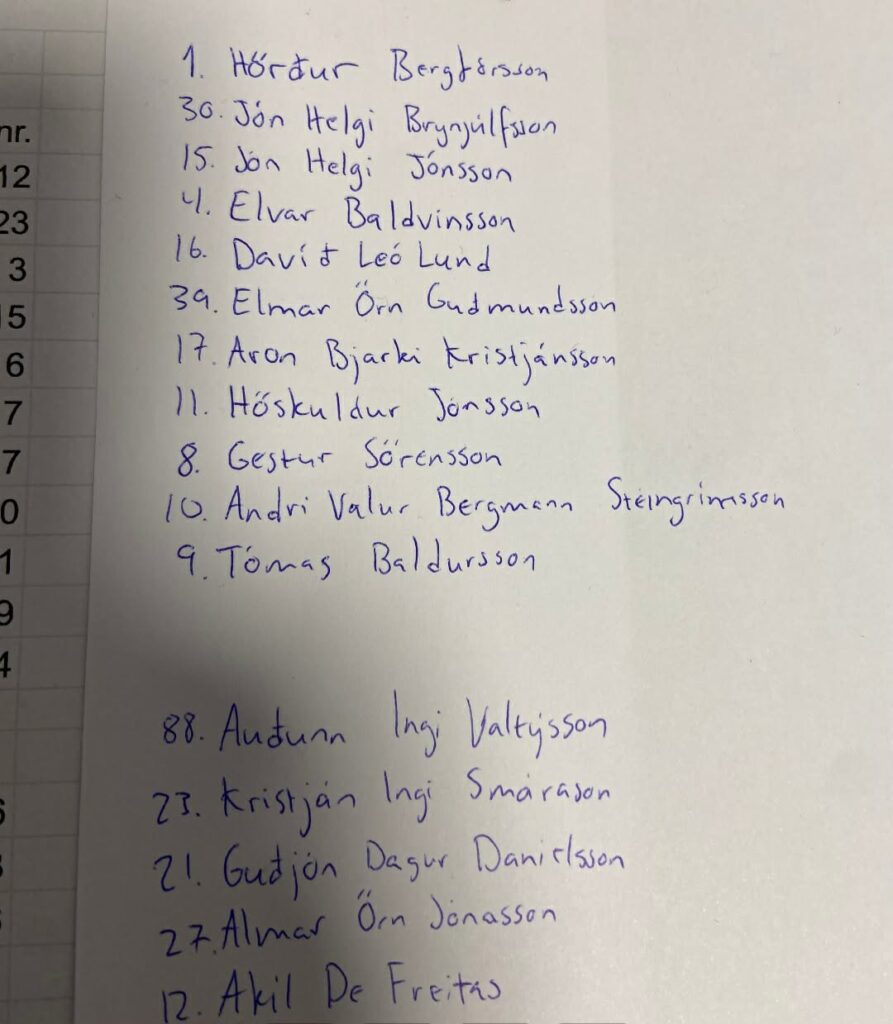 nr.
12
23
3
15
6
7
7
0
1
9
4
1. Hörður Bergþórsson
30. Jón Helgi Brynjúlfsson
15. Jón Helgi Jónsson
4. Elvar Baldvinsson
16. Davíð Leó Lund
39. Elmar Örn Guðmundsson
17. Aron Bjarki Kristjánsson
11. Höskuldur Jónsson
8. Gestur Sörensson
10. Andri Valur Bergmann Steingrímsson
9. Tómas Baldursson
88. Auðunn Ingi Valtýsson
23. Kristján Ingi Smárason
21. Guðjón Dagur Daníelsson
27. Almar Örn Jónasson
12. Akil De Freitas